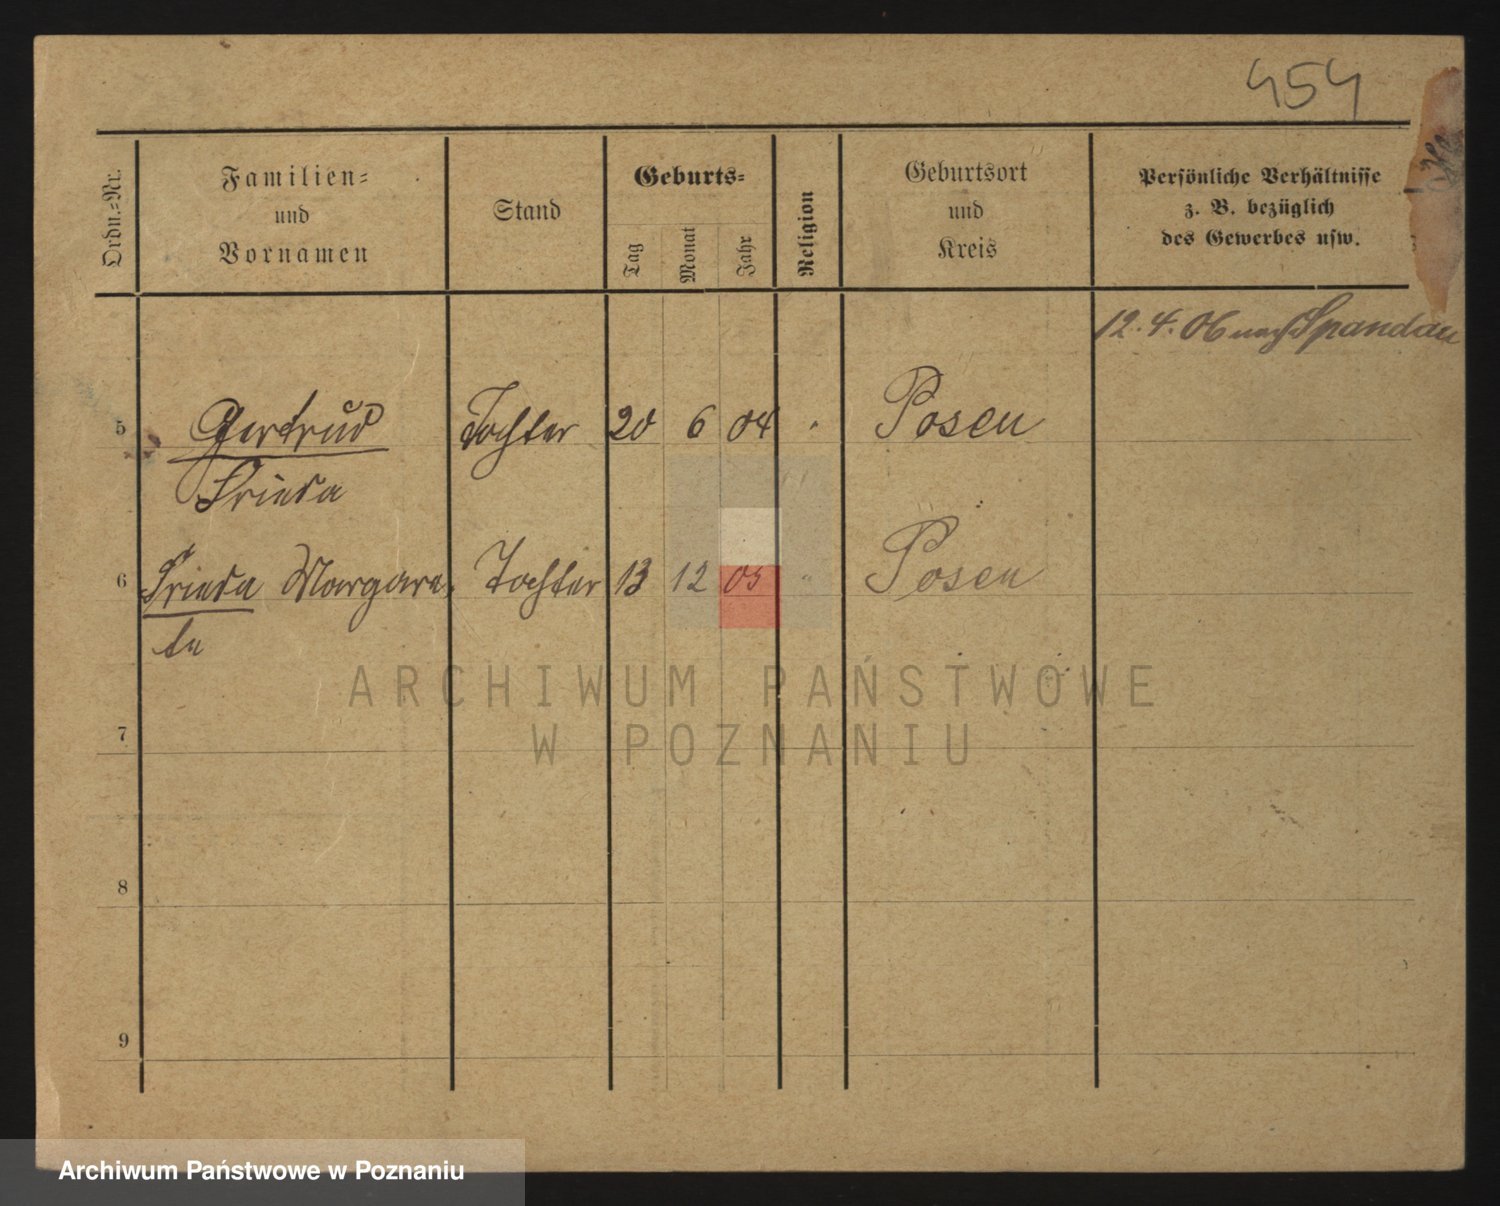 454
Ordn.-Nr.
Familien-
und
Vornamen
Stand
Geburts-
Tag
Monat
Jahr
Religion
Geburtsort
und
Kreis
Persönliche Verhältnisse
z. B. bezüglich
des Gewerbes usw.
12.4.06 nach Spandau
5 Gertrud Tochter 20 6 04 " Posen
Frieda
6 Frieda Margare- Tochter 13 12 05 " Posen
te
7
8
9
ARCHIWUM PAŃSTWOWE
W POZNANIU
Archiwum Państwowe w Poznaniu